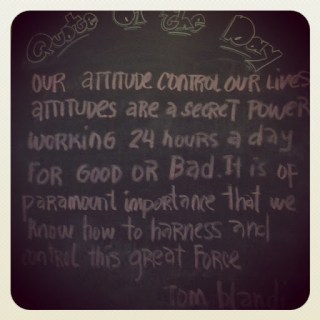 Quote of the Day
OUR ATTITUDE CONTROL OUR LIVES
ATTITUDES ARE A SECRET POWER
WORKING 24 HOURS a day
FOR GOOD OR Bad. It is OF
paramount importance that we
know how to harness and
control this great Force
Tom blandi